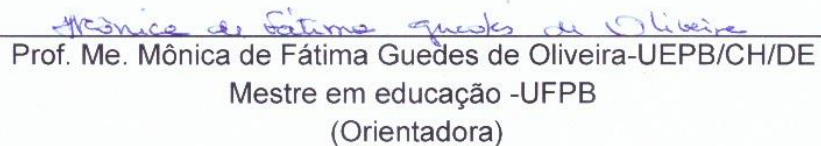 Mônica de Fátima Guedes de Oliveira
Prof. Me. Mônica de Fátima Guedes de Oliveira-UEPB/CH/DE
Mestre em educação -UFPB
(Orientadora)